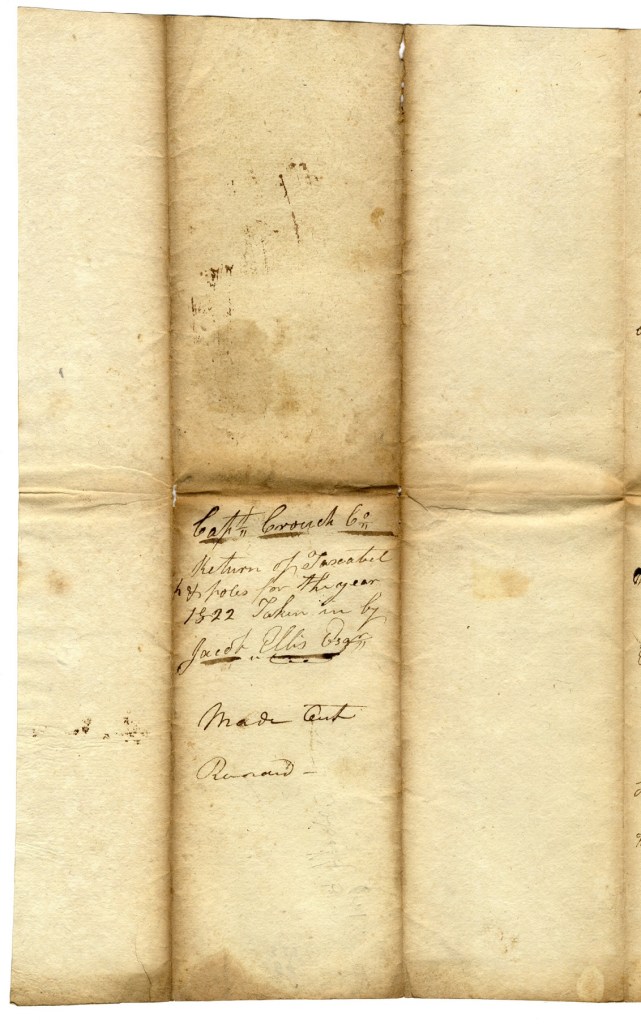 Capt Crouch Co
Return of Taxcabel
& poles for the year
1822 Taken in by
Jacob Ellis Esqr
Made Out